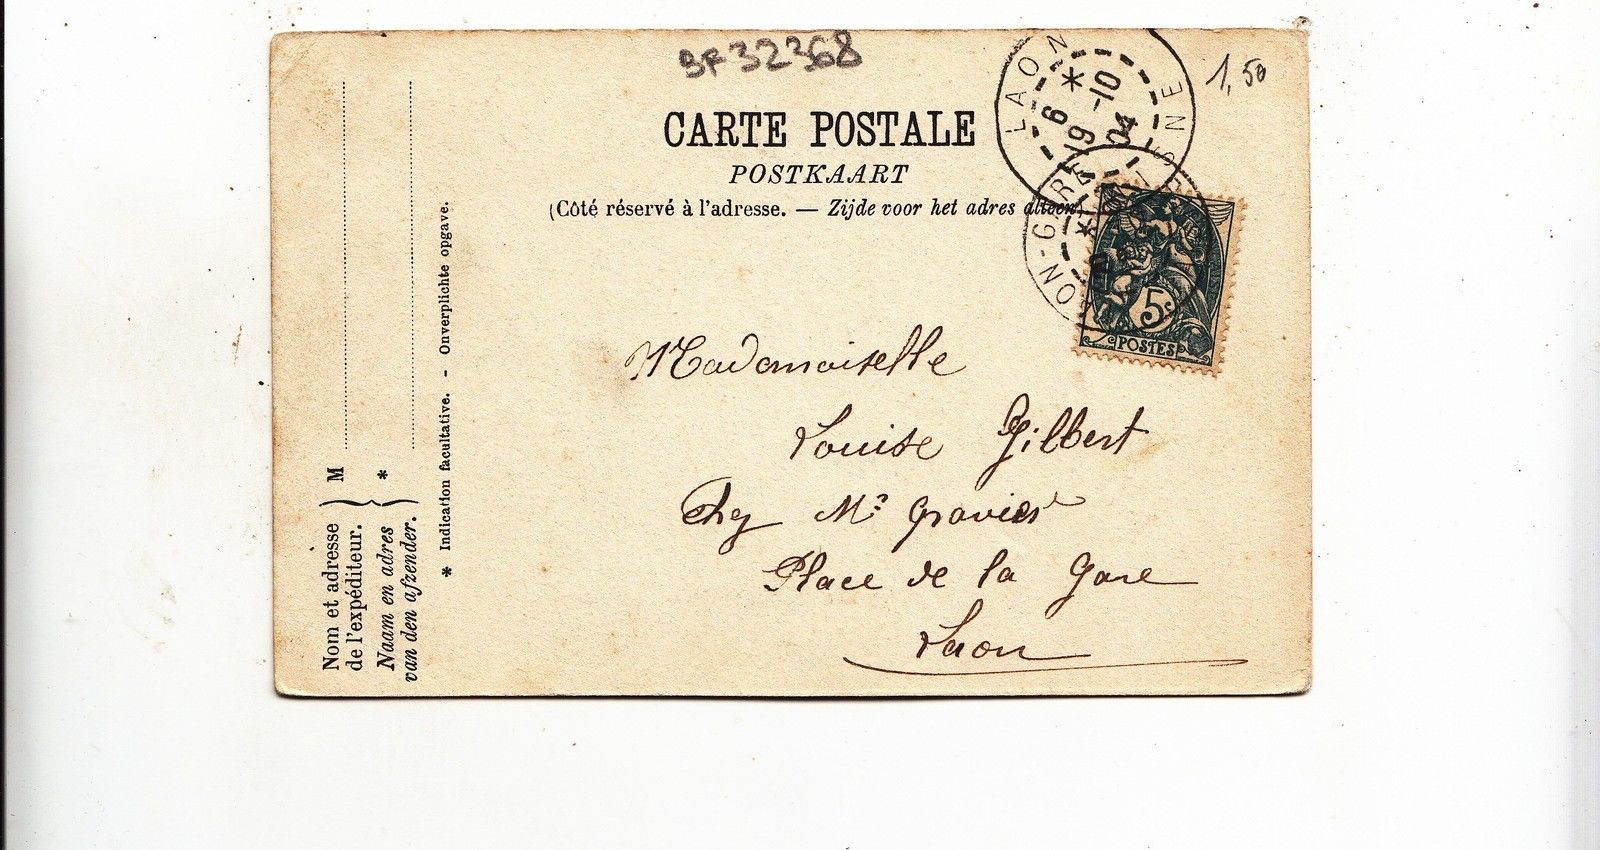 BF32368
1,50
CARTE POSTALE
POSTKAART
(Côté réservé à l'adresse. — Zijde voor het adres alleen)
LAON
AISNE
6 *
19 -10
04
LAON-GARE
5c
POSTES
Mademoiselle
Louise Gilbert
Chez Mr Gravier
Place de la Gare
Laon
Nom et adresse
de l'expéditeur.
M
Naam en adres
van den afzender.
*
* Indication facultative. - Onverplichte opgave.